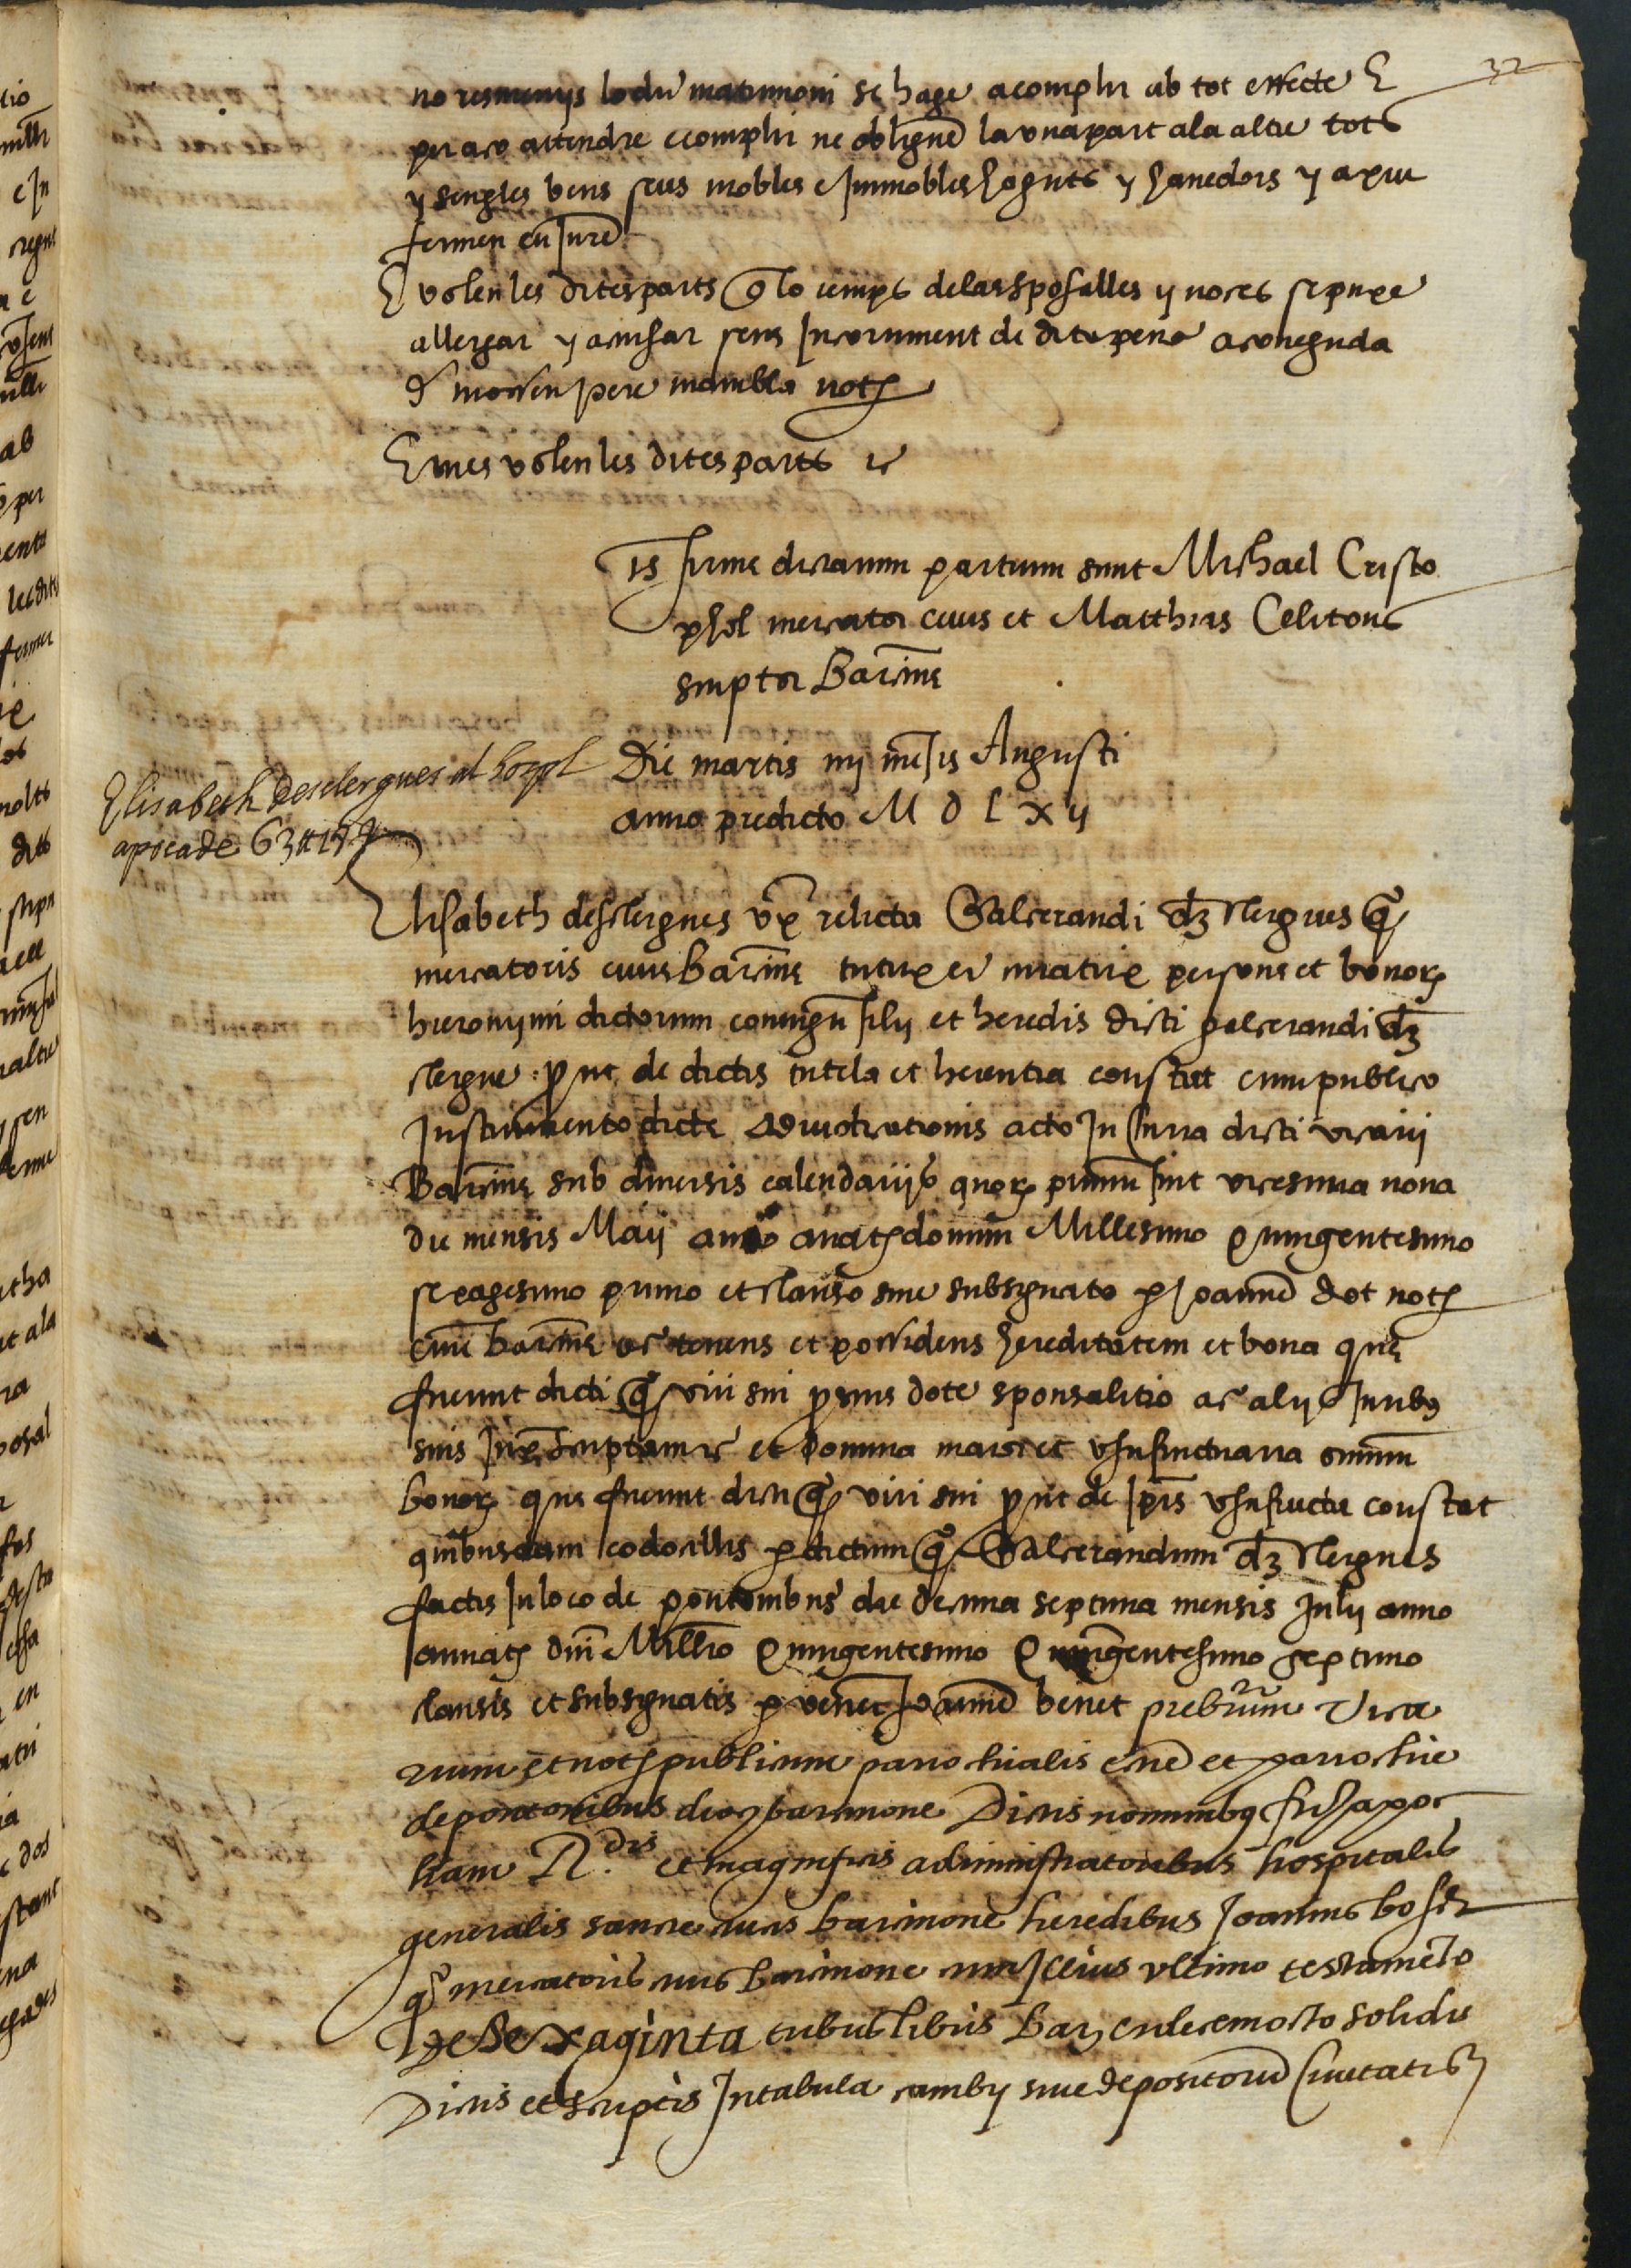 32
no resmenys lo dit matrimoni se hage a complir ab tot effecte E
per aço attendre e complir ne obliguē la una part a la altre tots
y sengles bens seus mobles e Immobles haguts y hauedors y axiu
fermen eu Jurē
E volen les dites parts q̄ lo temps de las sposalles y noces se puxe
allergar y acursar sens Incorriment de dita pena a coneguda
d mossen pere mambla notȝ
E mes volen les dites parts ec̄
Ts firme dictarum partium sunt Michael Cristo
phol mercator ciuis et Matthias Celitons
scriptor Barcin̄e
Elisabeth desclergues al hospl
apoca de 63 ₶ 18 ß
Die martis iiij mēsis Augusti
anno predicto M D L X ij
Elisabeth desclergues vx̄ relicta Galcerandi dȝ clergues q̄
mercatoris ciuis Barcin̄e tutrix et curatrix persone et bonorȝ
hieronymi dictorum coniugū filij et heredis dicti galcerandi dȝ
clergue prout de dictis tutela et herentia constat cum publico
Instrumento dicte adiudicationis acto In Curia dicti vicarij
Barcin̄e sub diuersis calendarijs quorȝ primū fuit vicesima nona
die mensis Maij anno a natȝ domini Millesimo Quingentesimo
sexagesimo primo et clauso siue subsignato p Joannē dot notȝ
ciuē barcin̄e ac tenens et possidens hereditatem et bona que
fuerunt dicti q̄ viri sui pro suis dote sponsalitio ac alijs Juribȝ
suis Infrascriptam ec̄ et domina maior et vsufructuaria omniū
bonorȝ que fuerunt dicti q̄ viri sui prout de Ip̄is vsufructu constat
quibusdam codocillis p dictum q̄ Galcerandum dȝ clergues
factis In loco de pontonibus die decima septima mensis Julij anno
a natȝ dn̄i Millō Quingentesimo Quingentesimo septimo
clausis et subsignatis p venēt Joannē benet prebr̄um Vica
rium et notȝ publicum parrochialis ecn̄e et parrochie
de pontonibus dioȝ barcinone Dictis nominibȝ fir apoc
ham R.dis et magnificis administratoribus hospitalis
generalis sancte crucis barcinone heredibus Joannis bosch
q̄ mercatoris ciuis barcinone cum Illius vltimo testamēto
De Sexaginta tribus libris Barȝ et decem octo solidis
Dictis et scriptis In tabula cambij siue depositorū Ciuitatis